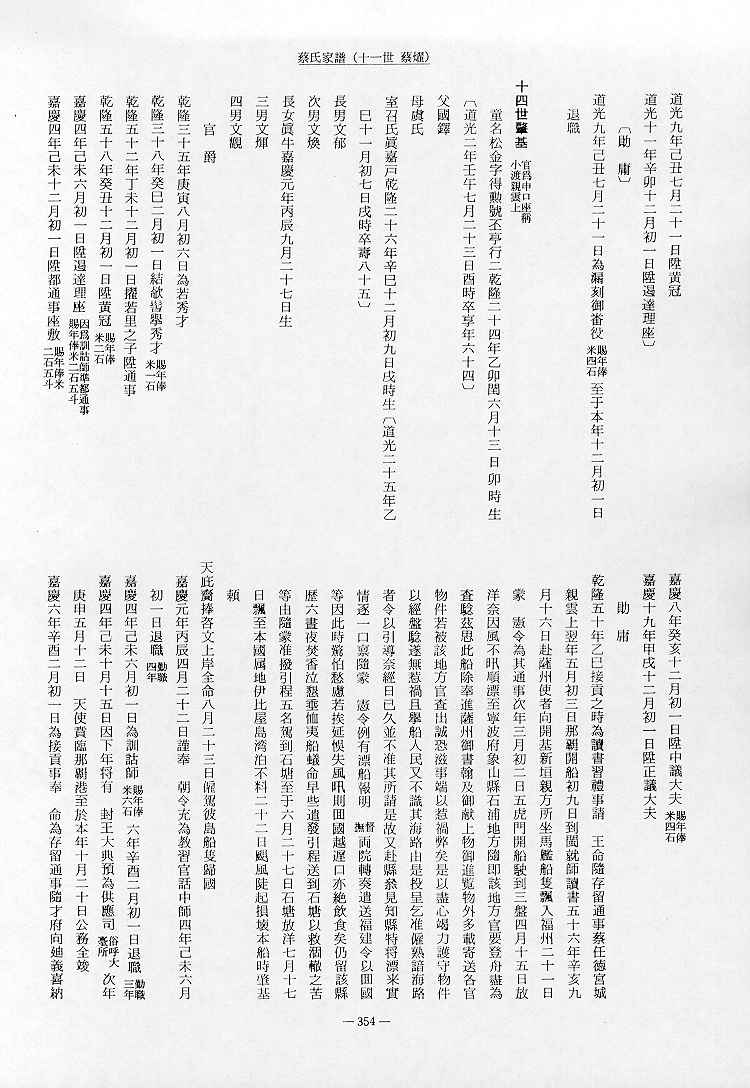 蔡氏家譜（十一世 蔡燿）
道光九年己丑七月二十一日陞黃冠
道光十一年辛卯十二月初一日陞遏達理座〕
〔勛庸〕
道光九年己丑七月二十一日為漏刻御番役 賜年俸米四石 至于本年十二月初一日
退職
十四世肇基 官爲中口座稱小渡親雲上
童名松金字得勳號丕亭行二乾隆二十四年乙卯閏六月十三日卯時生
〔道光二年壬午七月二十三日酉時卒享年六十四〕
父國鐸
母虞氏
室召氏眞嘉戸乾隆二十六年辛巳十二月初九日戌時生〔道光二十五年乙
巳十一月初七日戌時卒壽八十五〕
長男文郁
次男文煥
長女眞牛嘉慶元年丙辰九月二十七日生
三男文煇
四男文觀
官爵
乾隆三十五年庚寅八月初六日為若秀才
乾隆三十八年癸巳二月初一日結欹髻擧秀才 賜年俸米一石
乾隆五十二年丁未十二月初一日擢若里之子陞通事
乾隆五十八年癸丑十二月初一日陞黃冠 賜年俸米二石
嘉慶四年己未六月初一日陞遏達理座 因爲訓詁師準都通事賜年俸米二石五斗
嘉慶四年己未十二月初一日陞都通事座敷 賜年俸米二石五斗
嘉慶八年癸亥十二月初一日陞中議大夫 賜年俸米四石
嘉慶十九年甲戌十二月初一日陞正議大夫
勛庸
乾隆五十年乙巳接貢之時為讀書習禮事請 王命隨存留通事蔡任德宮城
親雲上翌年五月初三日那覇開船初九日到閩就師讀書五十六年辛亥九
月十六日赴薩州使者向開基新垣親方所坐馬艦船隻飄入福州二十一日
蒙 憲令為其通事次年三月初二日五虎門開船駛到三盤四月十五日放
洋奈因風不汛順漂至寧波府象山縣石浦地方隨即該地方官要登舟盡為
査驗茲思此船除奉進薩州御書翰及御献上物御進覧物外多載寄送各官
物件若被該地方官查出誠恐滋事端以惹禍弊矣是以盡心竭力護守物件
以經盤驗遂無惹禍且擧船人民又不識其海路由是投呈乞准僱熟諳海路
者令以引導奈經日已久並不准其所請是故又赴縣叅見知縣特将漂来實
情逐一口禀隨蒙 憲令例有漂船報明 督撫 両院轉奏遣送福建令以囬國
等因此時驚怕愁慮若挨延悞失風汛則囬國越遲口亦絶飲食矣仍留該縣
歴六晝夜焚香泣懇垂恤夷船蟻命早些遣發引程送到石塘以救涸轍之苦
等由隨蒙准撥引程五名駕到石塘至于六月二十七日石塘放洋七月十七
日飄至本國属地伊比屋島湾泊不料二十二日颶風陡起損壊本船時肇基
頼
天庇齎捧咨文上岸全命八月二十三日僱駕彼島船隻歸國
嘉慶元年丙辰四月二十二日謹奉 朝令充為教習官話中師四年己未六月
初一日退職 勤職四年
嘉慶四年己未六月初一日為訓詁師 賜年俸米六石 六年辛酉二月初一日退職 勤職三年
嘉慶四年己未十月十五日因下年将有 封王大典預為供應司 俗呼大臺所 次年
庚申五月十二日 天使賁臨那覇港至於本年十月二十日公務全竣
嘉慶六年辛酉二月初一日為接貢事奉 命為存留通事隨才府向廸義喜納
— 354 —